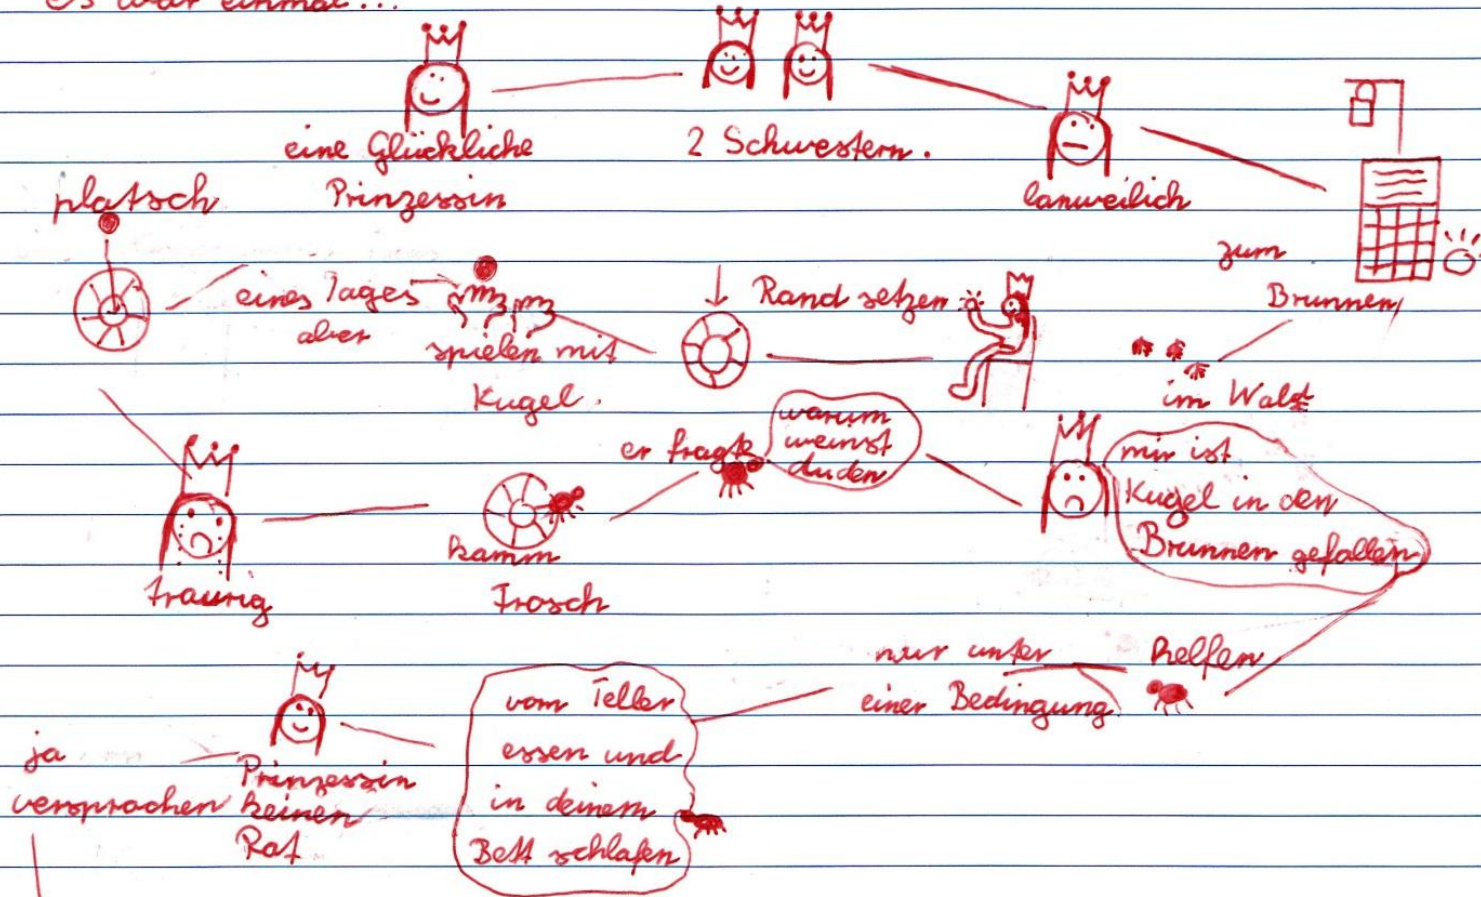 es war einmal...
eine Glückliche
Prinzessin
2 Schwestern.
lanweilich
zum
Brunnen
im Wald
Rand setzen
spielen mit
Kugel.
eines Tages
aber
platsch
traurig
kamm
Frosch
er fragte
warum
weinst
duden
mir ist
Kugel in den
Brunnen gefallen
helfen
nur unter
einer Bedingung
vom Teller
essen und
in deinem
Bett schlafen
Prinzessin
keinen
Rat
ja
versprochen